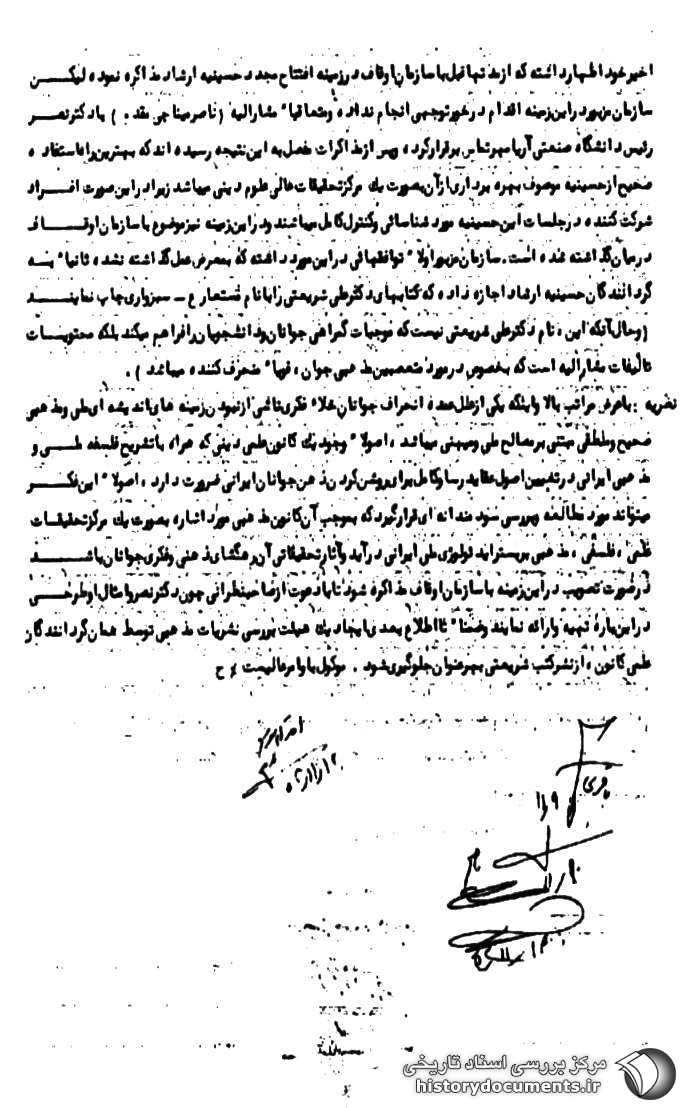 اخیر خود اظهار داشته که از مدتها قبل با سازمان اوقاف در زمینه افتتاح مجدد حسینیه ارشاد مذاکره نموده لیکن
سازمان مزبور در این زمینه اقدام در خور توجهی انجام نداده و متعاقبا" مشارالیه (ناصر میناچی مقدم) با دکتر نصر
رئیس دانشگاه صنعتی آریامهر تماس برقرار کرده و پس از مذاکرات مفصل به این نتیجه رسیده اند که بهترین راه استفاده
صحیح از حسینیه موصوف بهره برداری از آن بصورت یک مرکز تحقیقات عالی علوم دینی میباشد زیرا در این صورت افراد
شرکت کننده در جلسات این حسینیه مورد شناسائی و کنترل کامل میباشند و در این زمینه نیز موضوع با سازمان اوقاف
در میان گذاشته شده است. سازمان مزبور اولا" توافقهائی در این مورد داشته که بمعرض عمل گذاشته نشده ثانیا" به
گردانندگان حسینیه ارشاد اجازه داده که کتابهای دکتر علی شریعتی را با نام مستعار ع ـ سبزواری چاپ نمایند
(وحال آنکه این، نام دکتر علی شریعتی نیست که موجبات گمراهی جوانان و دانشجویان را فراهم میکند بلکه محتویات
تالیفات مشارالیه است که بخصوص در مورد متعصبین مذهبی جوان، قویا" منحرف کننده میباشد).
نظریه : با عرض مراتب بالا و اینکه یکی از علل عمده انحراف جوانان خلاء فکری ناشی از نبودن زمینه های اندیشه ای ملی و مذهبی
صحیح و منطقی مبتنی بر مصالح ملی و میهنی میباشد، اصولا" وجود یک کانون علمی دینی که همراه با تشریح فلسفه ملی و
مذهبی ایرانی در تفهیم اصول عقاید رسا و کامل برای روشن کردن ذهن جوانان ایرانی ضرورت دارد، اصولا" این فکر
میتواند مورد مطالعه و بررسی سودمندانه ای قرار گیرد که بموجب آن کانون مذهبی مورد اشاره بصورت یک مرکز تحقیقات
علمی، فلسفی، مذهبی بر بستر ایدئولوژی ملی ایرانی در آید و آثار تحقیقاتی آن رهگشای ذهنی و فکری جوانان باشد
در صورت تصویب در این زمینه با سازمان اوقاف مذاکره شود تا با دعوت از صاحبنظرانی چون دکتر نصر و امثال او طرحی
در این باره تهیه و ارائه نمایند و ضمنا" تا اطلاع بعدی ایجاد یک هیئت بررسی نشریات مذهبی توسط همان گردانندگان
علمی کانون، از نشر کتب شریعتی بهر عنوان جلوگیری شود. موکول باوامر عالیست ٪ ح
مرکز بررسی اسناد تاریخی
historydocuments.ir